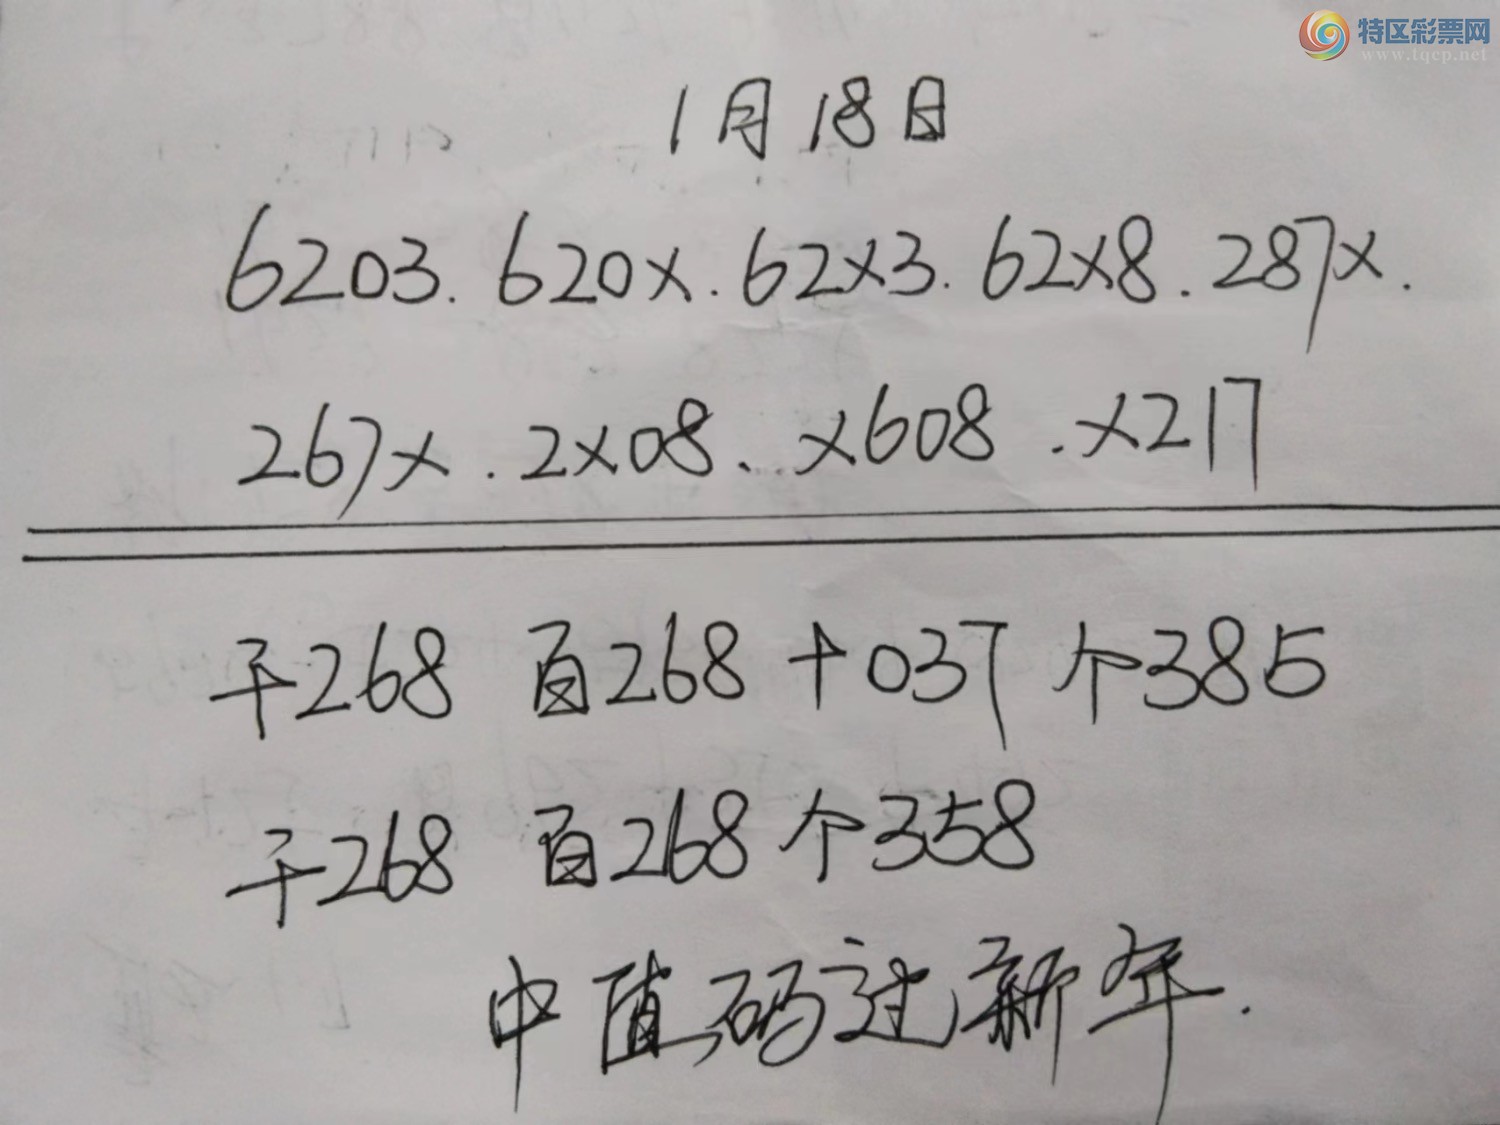 特区彩票网
www.tqcp.net
1月18日
6203. 620x. 62x3. 62x8. 287x.
267x. 2x08. x608. x217
千268 百268 十037 个385
千268 百268 个358
中值码过新年.